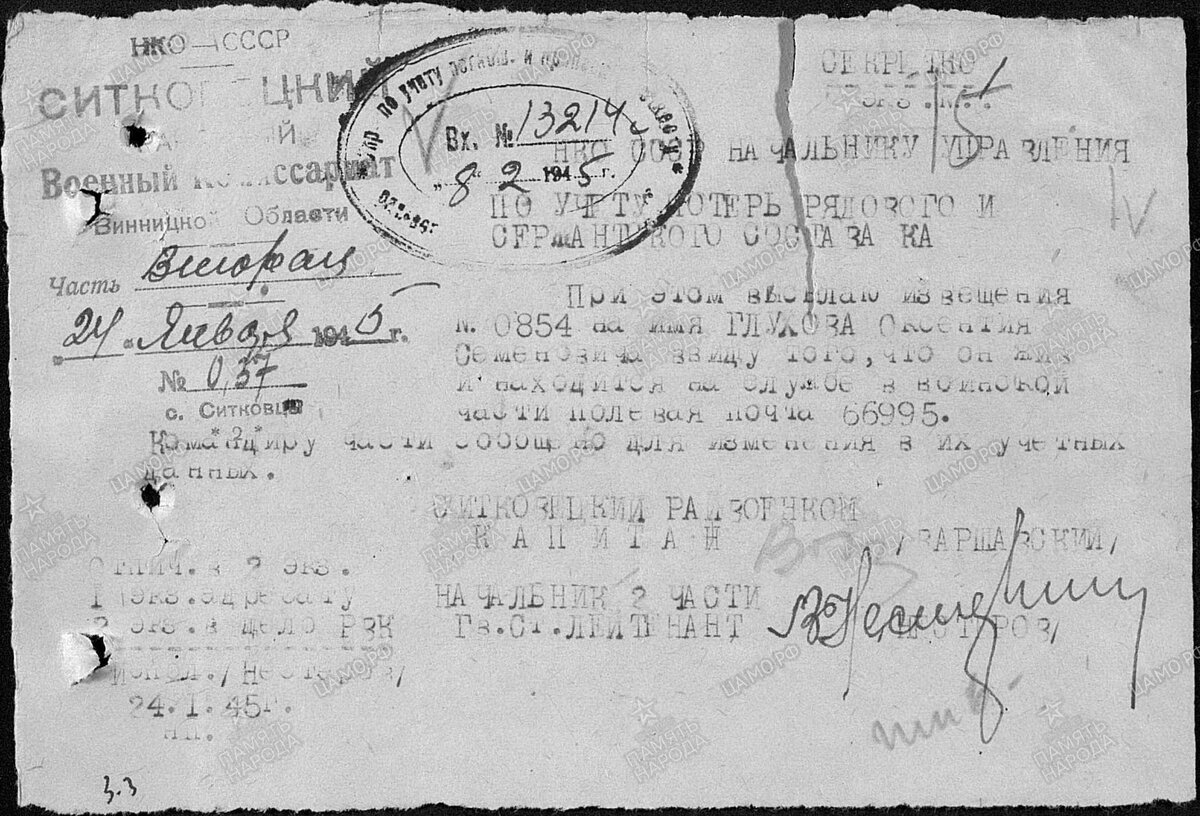 НКО — СССР
СИТКОВЕЦКИЙ
Военный Комиссариат
Винницкой Области
Часть Вторая
"24" Января 1945 г.
№ 037
с. Ситковцы
Упр по учету погибш. и
Вх. № 13214
"8" 2 1945 г.
СЕКРЕТНО
НКО СССР НАЧАЛЬНИКУ УПРАВЛЕНИЯ
ПО УЧЕТУ ПОТЕРЬ РЯДОВОГО И
СЕРЖАНТСКОГО СОСТАВА КА
При этом высылаю извещения
№ 0854 на имя ГЛУХОВА Оксентия
Семеновича ввиду того, что он жив
и находится на службе в воинской
части полевая почта 66995.
Командиру части сообщено для изменения в их учетных
данных.
СИТКОВЕЦКИЙ РАЙВОЕНКОМ
КАПИТАН /ВАРШАВСКИЙ/
НАЧАЛЬНИК 2 ЧАСТИ
Гв.Ст.ЛЕЙТЕНАНТ
Отпич. в 2 экз.
1 экз. адресату
2 экз. в дело РВК
24.1.45г.
3.3
ЦАМО.РФ
ПАМЯТЬ НАРОДА